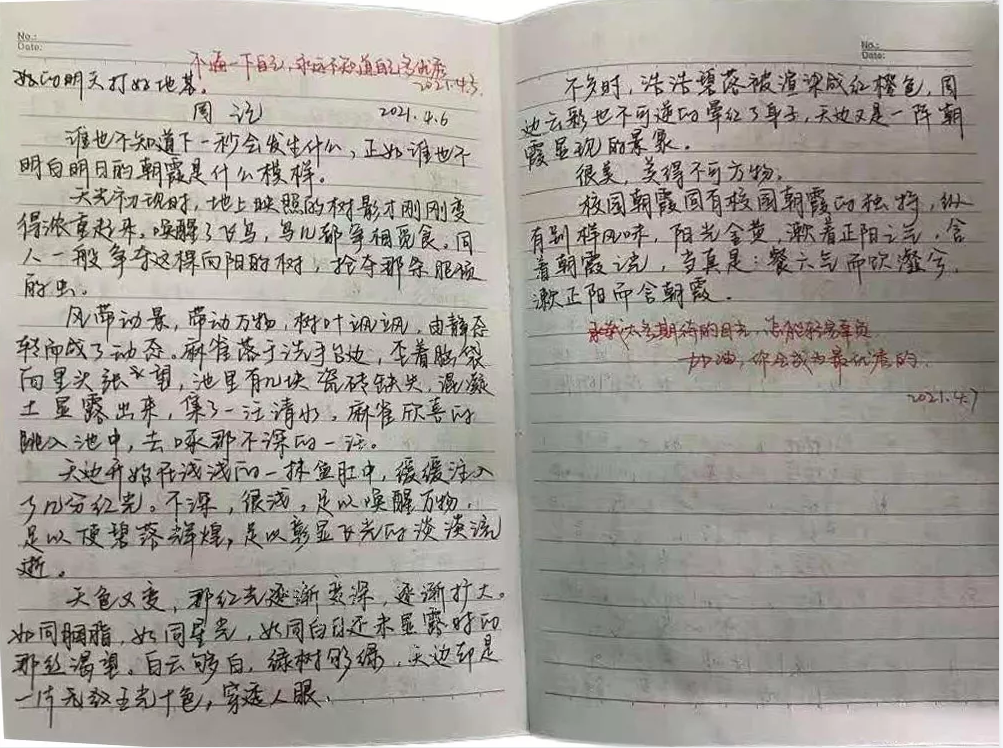 No.:
Date:
不逼一下自己,永远不知道自己多优秀
2021.4.5.
如功明天打好地基。
周记 2021.4.6
谁也不知道下一秒会发生什么,正如谁也不
明白明日的朝霞是什么模样。
天光初现时,地上映照的树影才刚刚变
得浓重起来。唤醒了飞鸟,鸟儿都争相觅食。同
人一般争夺这棵向阳的树,抢夺那条肥硕
的虫。
风带动景,带动万物,树叶飒飒,由静态
转而成了动态。麻雀落于洗手台边,歪着脑袋
向里头张望,池里有几块瓷砖缺失,混凝
土显露出来,集了一汪清水,麻雀欣喜的
跳入池中,去啄那不深的一汪。
天边开始在浅浅的一抹鱼肚中,缓缓注入
了几分红光。不深,很浅。足以唤醒万物,
足以使碧落辉煌,足以彰显飞光的淡淡流
逝。
天色又变,那红光逐渐变深,逐渐扩大。
如同胭脂,如同星光,如同白日还未显露时的
那丝渴望。白云够白,绿树够绿,天边却是
一片五光十色,穿透人眼。
No.:
Date:
不多时,浩浩碧落被渲染成红橙色,周
边云彩也不可逆的晕红了身子,天边又是一阵朝
霞显现的景象。
很美,美得不可方物。
校园朝霞固有校园朝霞的独特,纵
有别样风味,阳光金黄,漱着正阳之气,含
着朝霞之光,当真是:餐六气而饮瀣兮,
漱正阳而含朝霞。
太多期待的目光,怎能轻易辜负
加油,你会成为最优秀的.
2021.4.7